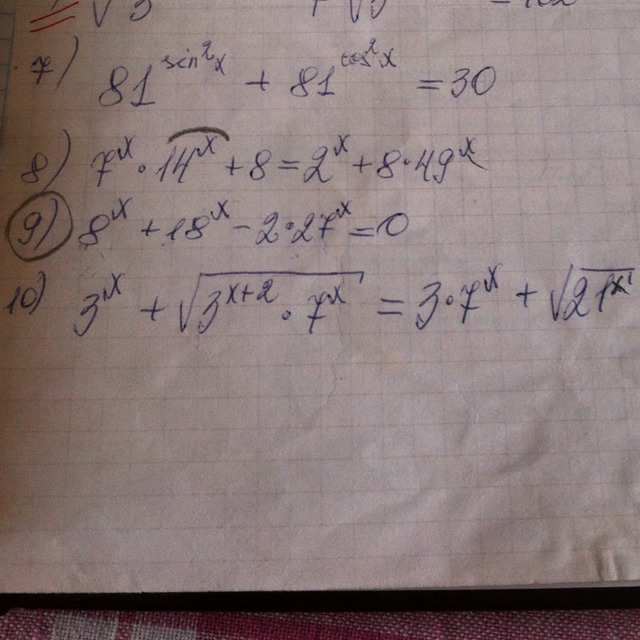 7) 81^sin²x + 81^cos²x = 30
8) 7^x · 14^x + 8 = 2^x + 8 · 49^x
9) 8^x + 18^x - 2 · 27^x = 0
10) 3^x + √(3^(x+2) · 7^x) = 3 · 7^x + √(21^x)